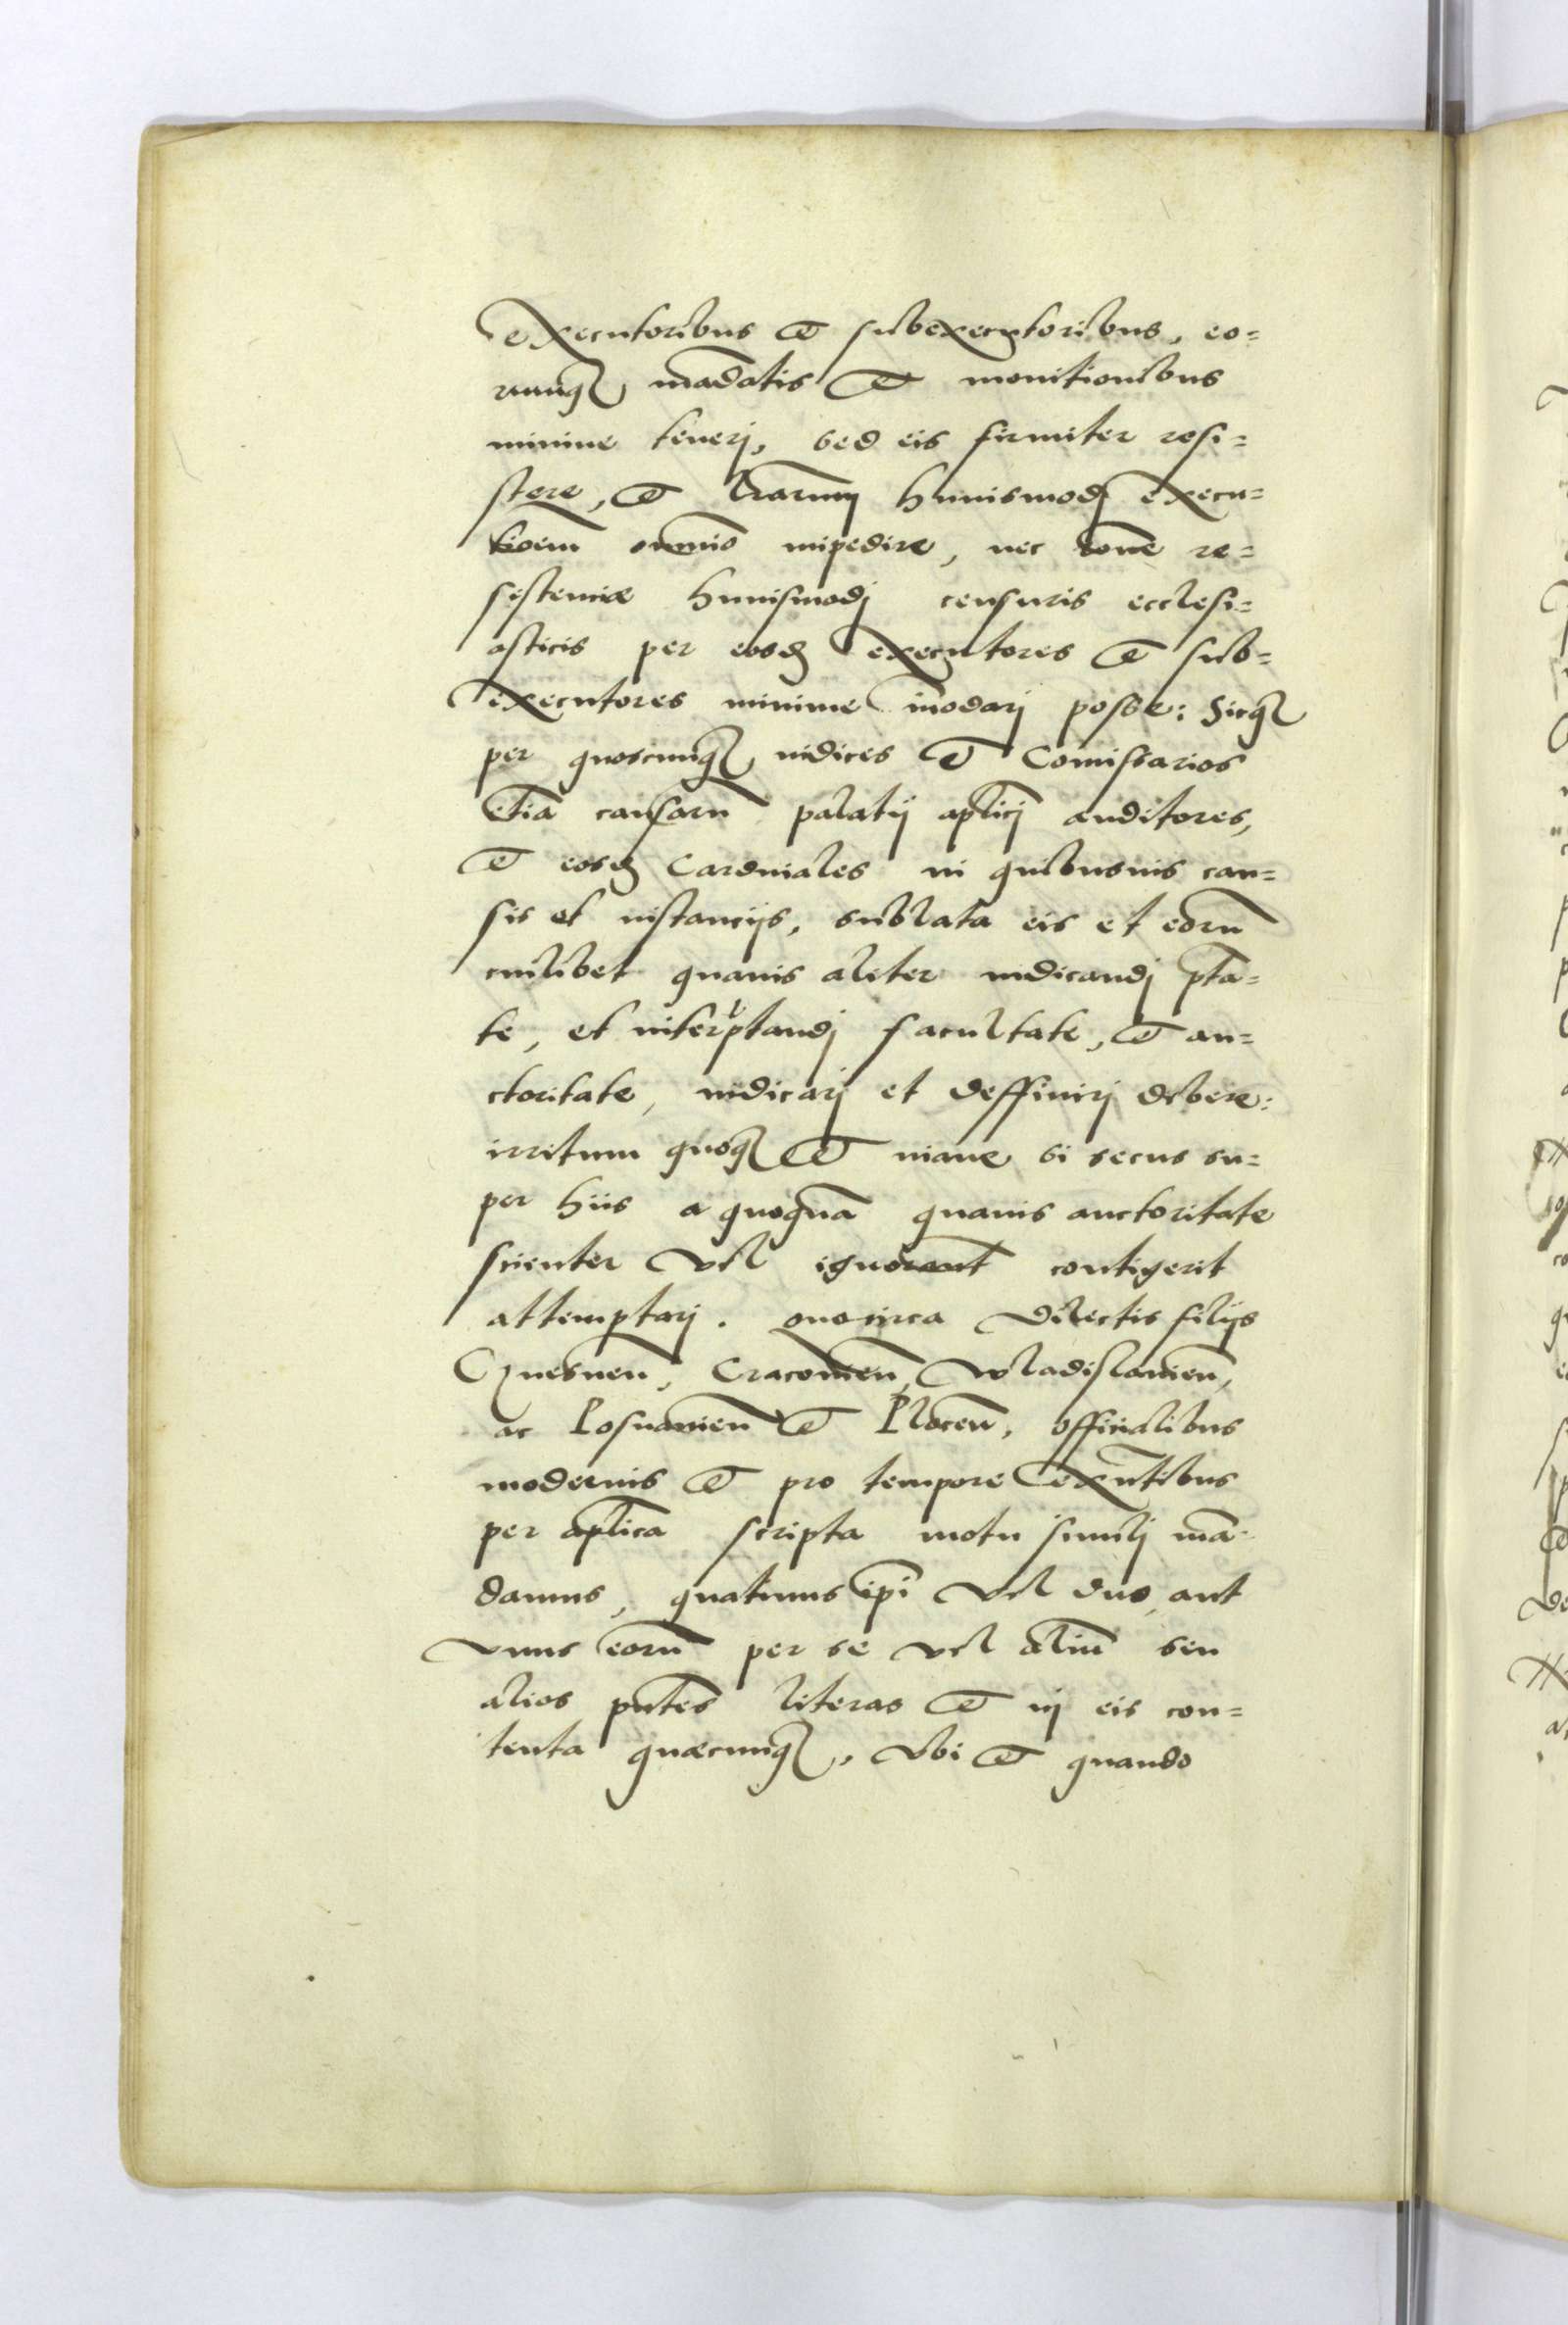 executoribus et subexecutoribus, eo=
rumq̃ mãdatis et monitionibus
minime tenerj, sed eis firmiter resi=
stere, et l̃rarum huiusmodj execu=
tioem̃ omnĩo impedire, nec rõne re=
sistentiæ huiusmodj censuris ecclesi=
asticis per eosdẽ executores et sub=
executores minime in̄odarj posse: Sicq̃
per quoscunq̃ iudices et Com̃issarios
Etiã causarũ palatij apl̃icj auditores,
et eosdẽ Cardinales in quibusuis cau=
sis et instancijs, sublata eis et eorũ
cuilibet quauis aliter iudicandj p̃ta=
te, et interp̃tandj facultate, et au=
ctoritate, iudicarj et deffinirj debere:
irritum quoq̃ et inane si secus su=
per hiis a quoquã quauis auctoritate
scienter vel ignorant̃ contigerit
attemptarj. quocirca Dilectis filijs
Gnesnen̄, Cracouien̄, Wladislauien̄,
ac Posnanien̄ et Plocen̄, officialibus
modernis et pro tempore exñtibus
per apl̃ica scripta motu similj mã=
damus, quatinus ip̃i vel duo, aut
vnus eorũ per se vel aliũ seu
alios p̃ntes literas et in eis con=
tenta quæcunq̃, vbi et quando